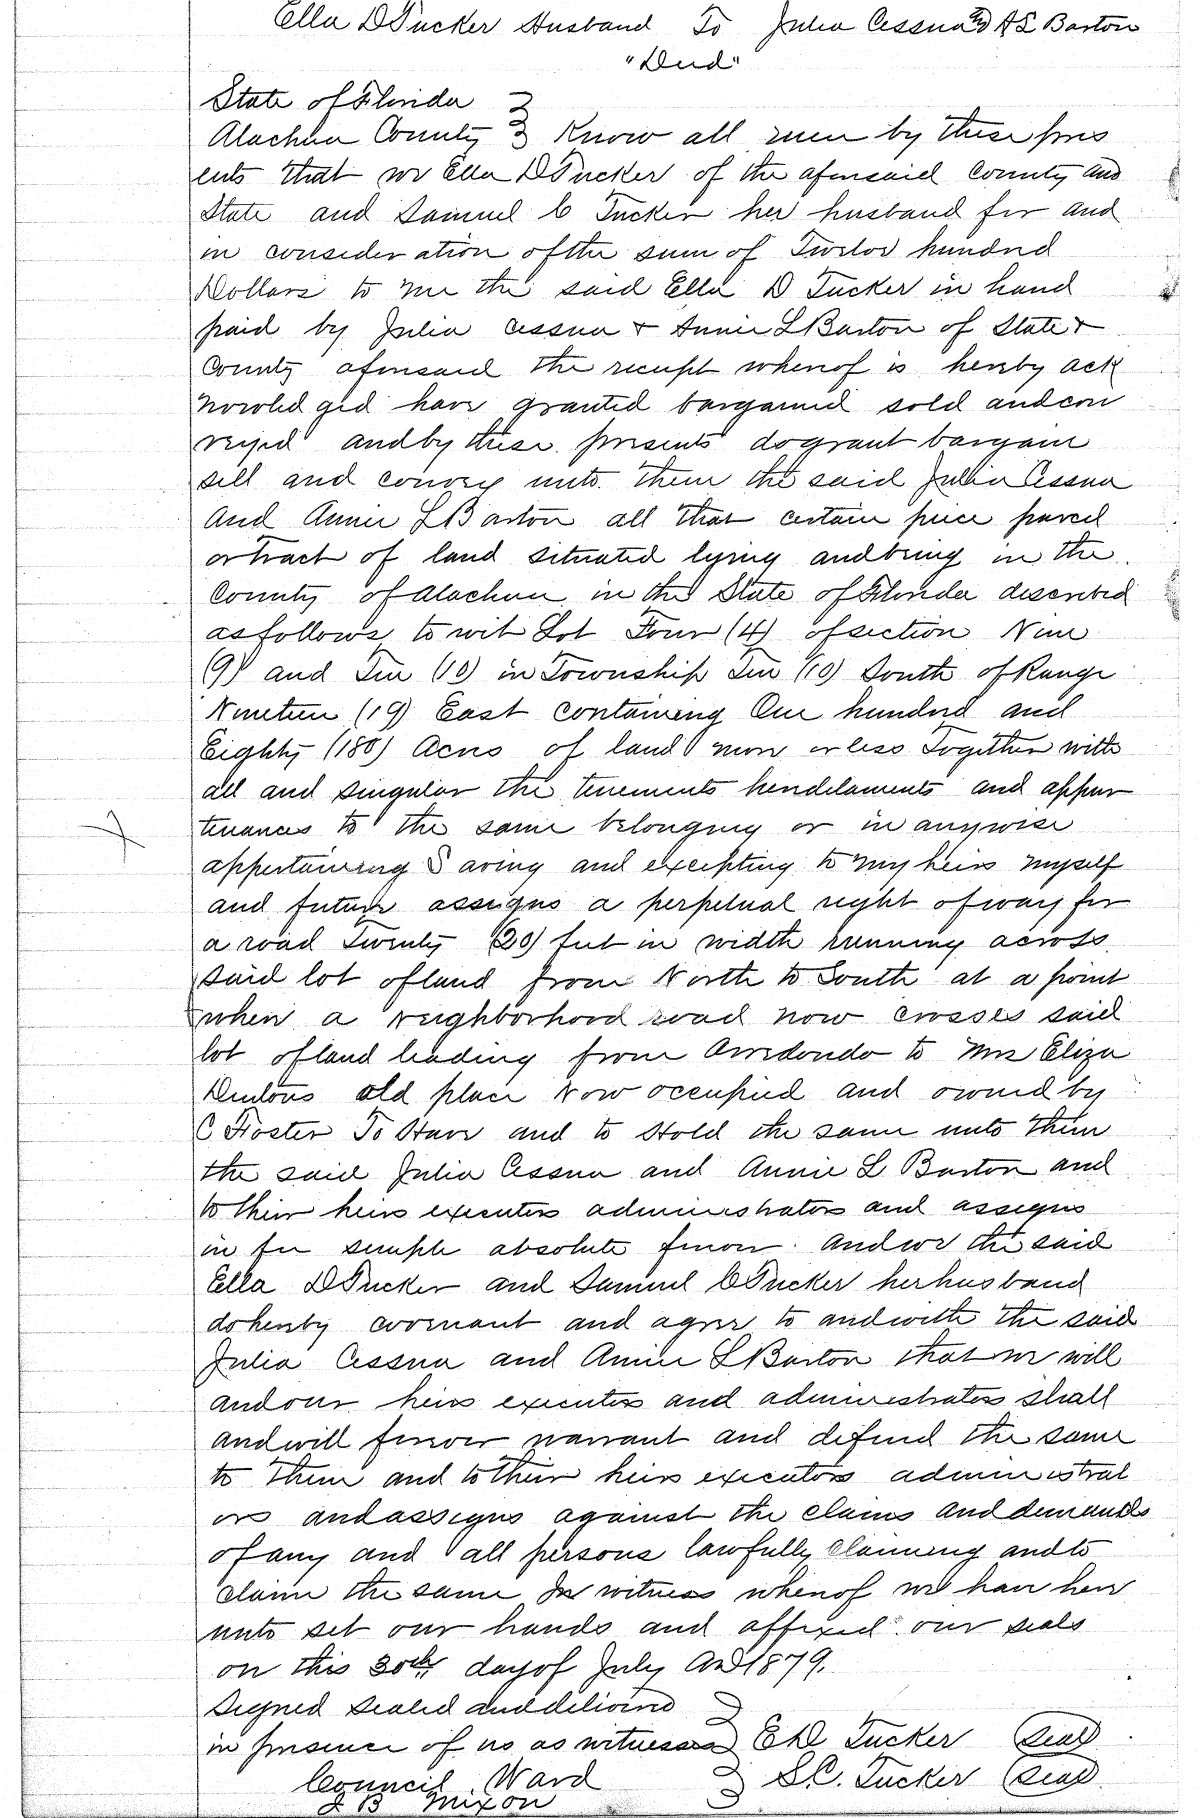 Ella D Tucker Husband To Julia Cessna & A L Barton
"Deed"
State of Florida
Alachua County Know all men by these pres
ents that we Ella D Tucker of the aforesaid County and
State and Samuel C Tucker her husband for and
in consideration of the sum of Twelve hundred
Dollars to me the said Ella D Tucker in hand
paid by Julia Cessna & Annie L Barton of State &
County aforesaid the receipt whereof is hereby ack
nowledged have granted bargained sold and con
veyed and by these presents do grant bargain
sell and convey unto them the said Julia Cessna
and Annie L Barton all that certain piece parcel
or tract of land situated lying and being in the
County of Alachua in the State of Florida described
as follows to wit Lot Four (4) of section Nine
(9) and Ten (10) in Township Ten (10) South of Range
Nineteen (19) East containing One hundred and
Eighty (180) Acres of land more or less Together with
all and singular the tenements hereditaments and appur
tenances to the same belonging or in anywise
appertaining Saving and excepting to my heirs myself
and future assigns a perpetual right of way for
a road Twenty (20) feet in width running across
said lot of land from North to South at a point
where a neighborhood road now crosses said
lot of land leading from Arredondo to Mrs Eliza
Dentons old place now occupied and owned by
C Foster To Have and to Hold the same unto them
the said Julia Cessna and Annie L Barton and
to their heirs executors administrators and assigns
in fee simple absolute forever. And we the said
Ella D Tucker and Samuel C Tucker her husband
do hereby covenant and agree to and with the said
Julia Cessna and Annie L Barton that we will
and our heirs executors and administrators shall
and will forever warrant and defend the same
to them and to their heirs executors administrat
ors and assigns against the claims and demands
of any and all persons lawfully claiming and to
claim the same In witness whereof we have here
unto set our hands and affixed our seals
on this 30th day of July AD 1879.
Signed sealed and delivered
in presence of us as witnesses E D Tucker (seal)
Council Ward S.C. Tucker (seal)
J B Mixon